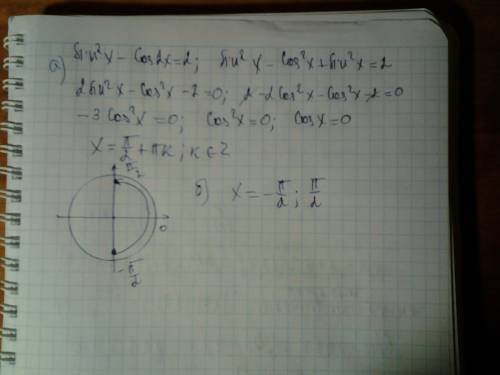 а) sin²x - cos2x = 2; sin²x - cos²x + sin²x = 2
2sin²x - cos²x - 2 = 0; 2 - 2cos²x - cos²x - 2 = 0
-3cos²x = 0; cos²x = 0; cosx = 0
x = π/2 + πk; k ∈ Z
π/2
б) x = -π/2; π/2
0
-π/2